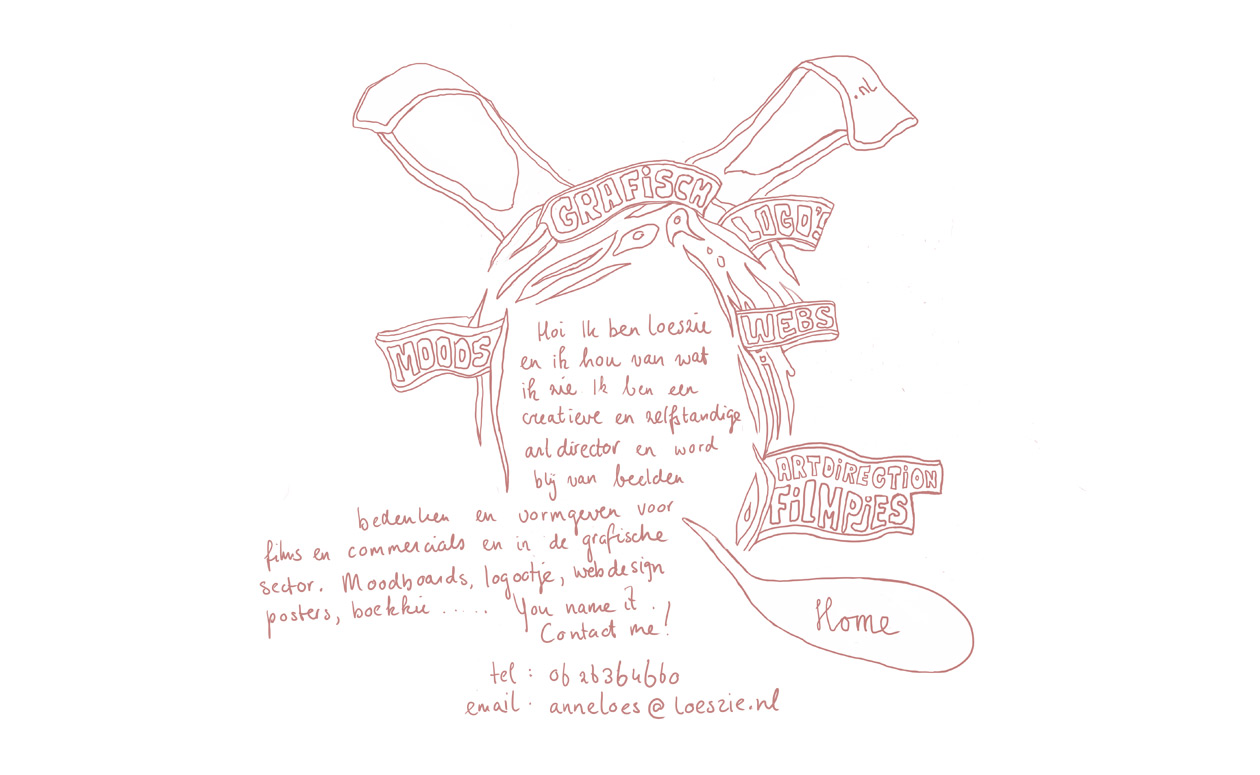 .nl
GRAFiSCH
LOGO'S
WEBS
MOODS
Hoi Ik ben loeszie
en ik hou van wat
ik zie. Ik ben een
creatieve en zelfstandige
art director en word
blij van beelden
ARTDIRECTION
FiLMPjES
bedenken en vormgeven voor
films en commercials en in de grafische
sector. Moodboards, logootje, webdesign
posters, boekkie ..... You name it .
Contact me!
Home
tel : 06 26364660
email : anneloes@loeszie.nl